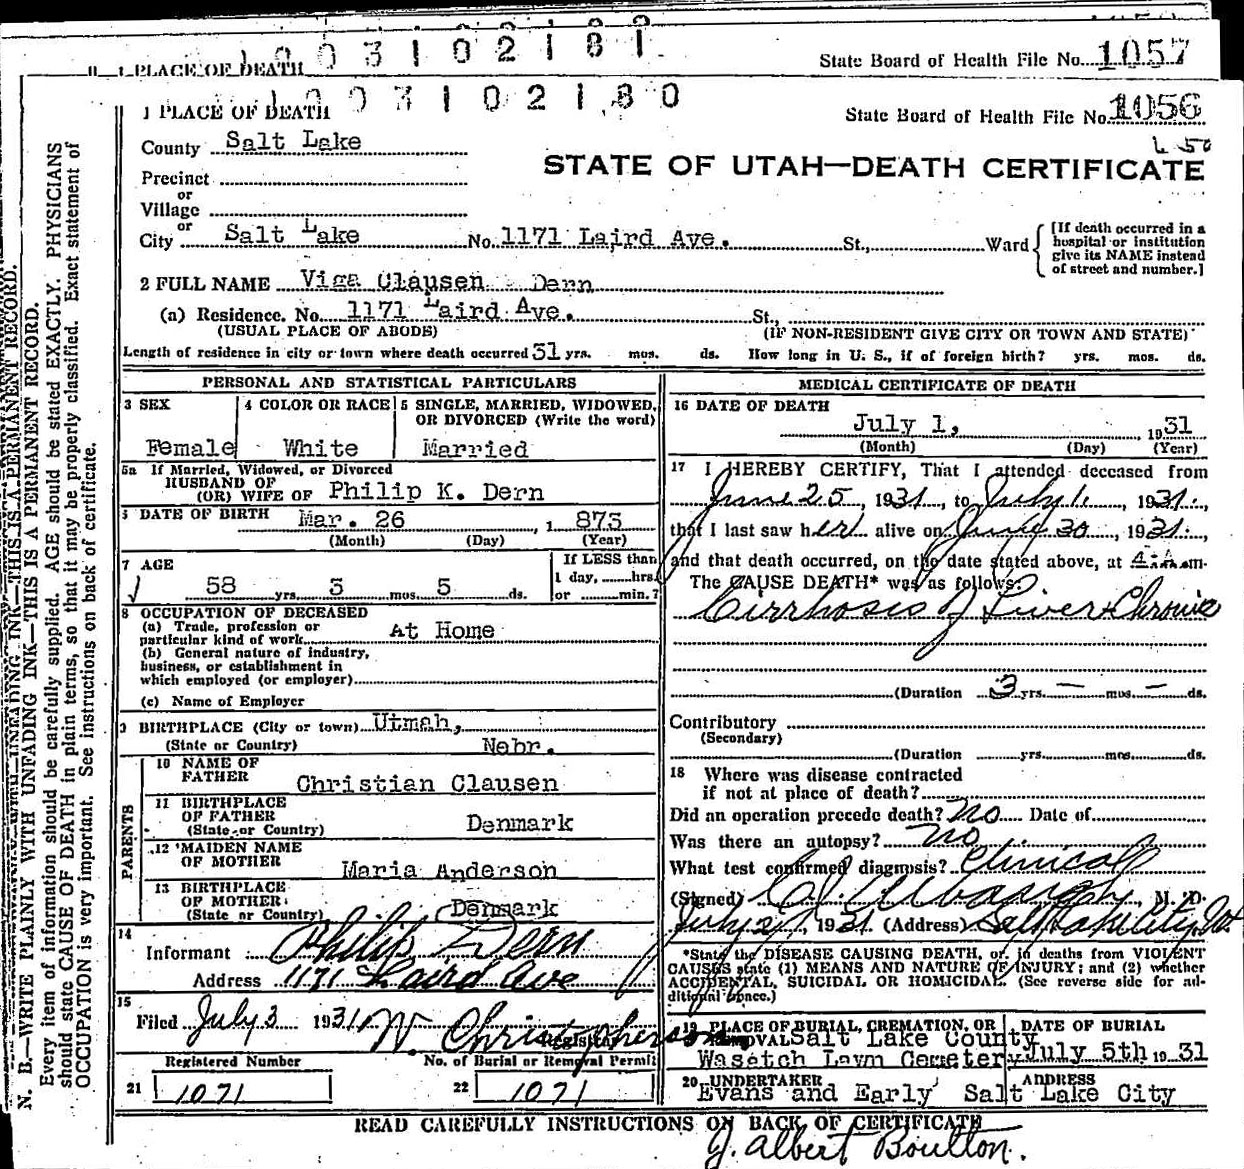 1 0 0 3 1 0 2 1 8 1
II 1 PLACE OF DEATH
State Board of Health File No. 1057
1 0 0 3 1 0 2 1 8 0
1 PLACE OF DEATH
State Board of Health File No. 1056
County Salt Lake
STATE OF UTAH—DEATH CERTIFICATE
Precinct
or
Village
or
City Salt Lake No. 1171 Laird Ave. St., Ward
[If death occurred in a hospital or institution give its NAME instead of street and number.]
2 FULL NAME Viga Clausen Dern
(a) Residence. No. 1171 Laird Ave. St.,
(USUAL PLACE OF ABODE) (IF NON-RESIDENT GIVE CITY OR TOWN AND STATE)
Length of residence in city or town where death occurred 31 yrs. mos. ds. How long in U. S., if of foreign birth? yrs. mos. ds.
PERSONAL AND STATISTICAL PARTICULARS
3 SEX 4 COLOR OR RACE 5 SINGLE, MARRIED, WIDOWED,
OR DIVORCED (Write the word)
Female White Married
5a If Married, Widowed, or Divorced
HUSBAND OF
(OR) WIFE OF Philip K. Dern
DATE OF BIRTH Mar. 26 1 873
(Month) (Day) (Year)
7 AGE If LESS than
1 day, hrs.
58 yrs. 3 mos. 5 ds. or min.?
8 OCCUPATION OF DECEASED
(a) Trade, profession or
particular kind of work At Home
(b) General nature of industry,
business, or establishment in
which employed (or employer)
(c) Name of Employer
9 BIRTHPLACE (City or town) Utmah,
(State or Country) Nebr.
PARENTS
10 NAME OF
FATHER Christian Clausen
11 BIRTHPLACE
OF FATHER
(State or Country) Denmark
12 MAIDEN NAME
OF MOTHER Maria Anderson
13 BIRTHPLACE
OF MOTHER
(State or Country) Denmark
14
Informant Philip Dern
Address 1171 Laird Ave
15
Filed July 3 1931 W. Christopherson
Registrar
Registered Number No. of Burial or Removal Permit
21 1071 22 1071
MEDICAL CERTIFICATE OF DEATH
16 DATE OF DEATH
July 1, 1931
(Month) (Day) (Year)
17 I HEREBY CERTIFY, That I attended deceased from
June 25, 1931, to July 1, 1931,
that I last saw her alive on June 30, 1931,
and that death occurred, on the date stated above, at 4:A.m.
The CAUSE DEATH* was as follows:
Cirrhosis of Liver Chronic
(Duration 3 yrs. — mos. — ds.
Contributory
(Secondary)
(Duration yrs. mos. ds.
18 Where was disease contracted
if not at place of death?
Did an operation precede death? No Date of
Was there an autopsy? No
What test confirmed diagnosis? Clinical
(Signed) M. D.
July 2, 1931 (Address) Salt Lake City, Ut.
*State the DISEASE CAUSING DEATH, or, in deaths from VIOLENT
CAUSES state (1) MEANS AND NATURE OF INJURY; and (2) whether
ACCIDENTAL, SUICIDAL OR HOMICIDAL. (See reverse side for ad-
ditional space.)
19 PLACE OF BURIAL, CREMATION, OR DATE OF BURIAL
REMOVAL Salt Lake County
Wasetch Lawn Cemetery July 5th 1931
20 UNDERTAKER ADDRESS
Evans and Early Salt Lake City
READ CAREFULLY INSTRUCTIONS ON BACK OF CERTIFICATE
J. Albert Boulton.
N. B.—WRITE PLAINLY WITH UNFADING INK—THIS IS A PERMANENT RECORD.
Every item of information should be carefully supplied. AGE should be stated EXACTLY. PHYSICIANS
should state CAUSE OF DEATH in plain terms, so that it may be properly classified. Exact statement of
OCCUPATION is very important. See instructions on back of certificate.